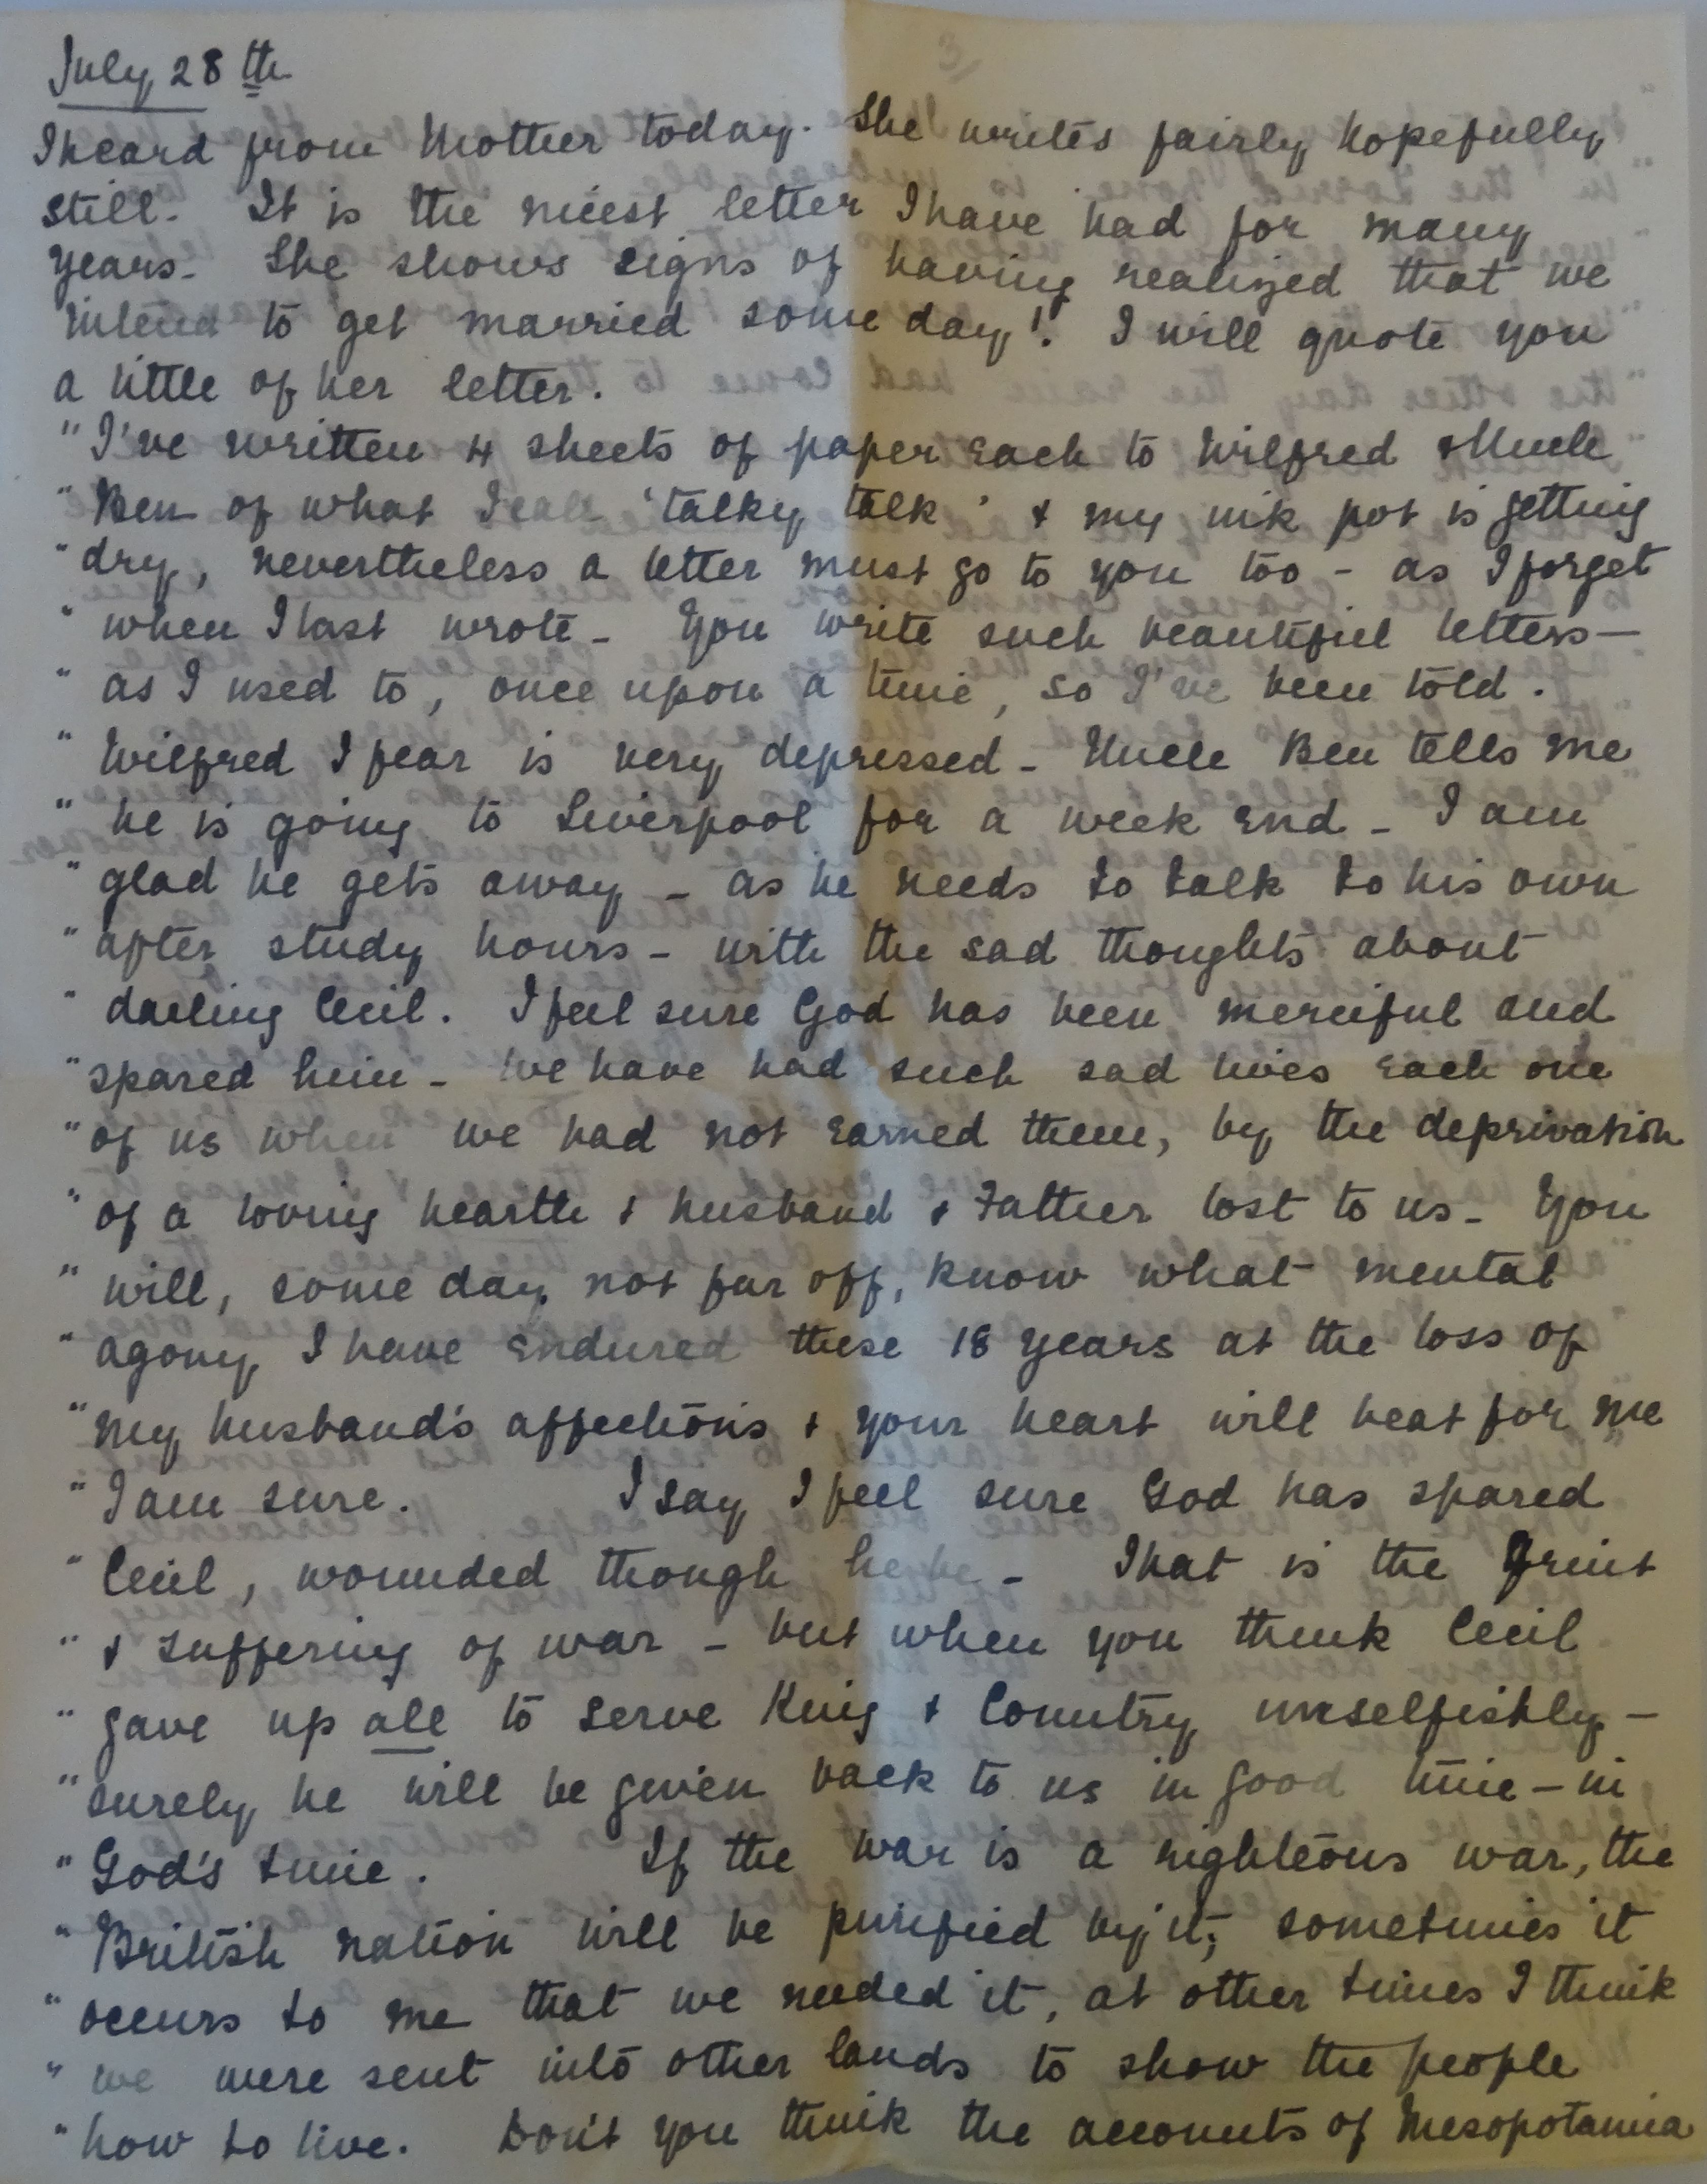 3
July 28th
I heard from Mother today. She writes fairly hopefully
still. It is the nicest letter I have had for many
years. She shows signs of having realized that we
intend to get married some day! I will quote you
a little of her letter.
" I've written 4 sheets of paper each to Wilfred & Uncle
" Ben of what I call 'talky talk' & my ink pot is getting
" dry, nevertheless a letter must go to you too - as I forget
" when I last wrote - You write such beautiful letters -
" as I used to, once upon a time, so I've been told.
" Wilfred I fear is very depressed - Uncle Ben tells me
" he is going to Liverpool for a week end - I am
" glad he gets away - as he needs to talk to his own
" after study hours - with the sad thoughts about
" darling Cecil. I feel sure God has been merciful and
" spared him - We have had such sad lives each one
" of us when we had not earned them, by the deprivation
" of a loving hearth & husband & Father lost to us - You
" will, some day, not far off, know what mental
" agony I have endured these 18 years at the loss of
" my husband's affections & your heart will beat for me
" I am sure. I say I feel sure God has spared
" Cecil, wounded though he be - That is the
" & suffering of war - but when you think Cecil
" gave up all to serve King & Country unselfishly -
" surely he will be given back to us in good time - in
" God's time. If the war is a righteous war, the
" British nation will be purified by it; sometimes it
" occurs to me that we needed it, at other times I think
" we were sent into other lands to show the people
" how to live. Don't you think the accounts of Mesopotamia